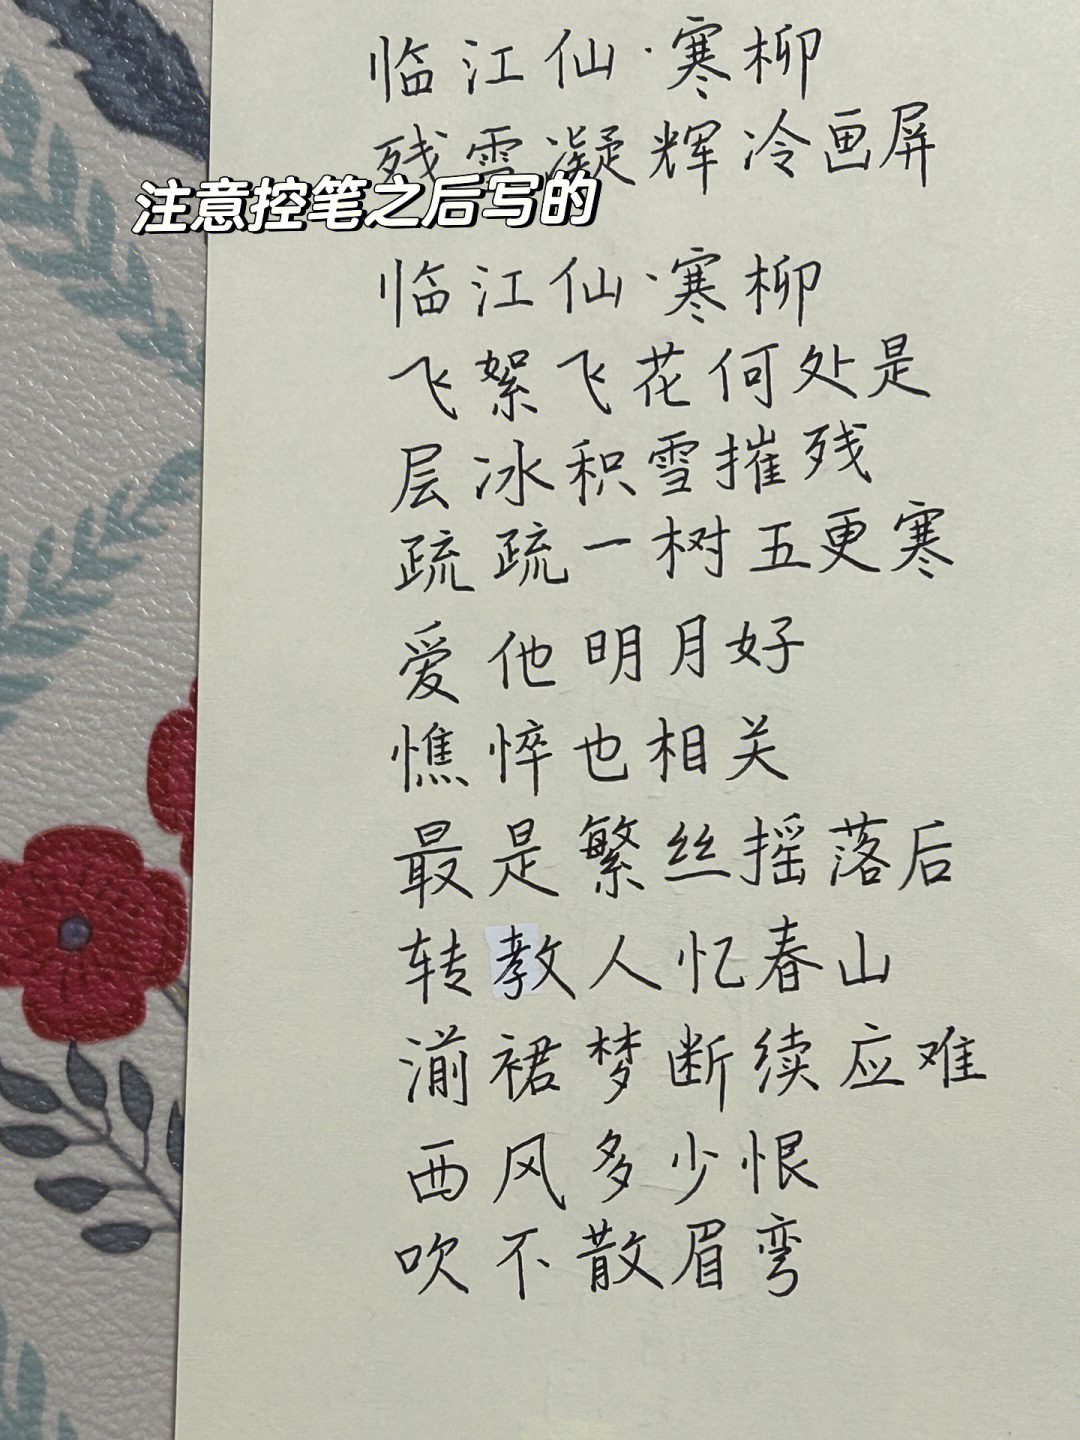 临江仙·寒柳
残雪凝辉冷画屏
注意控笔之后写的
临江仙·寒柳
飞絮飞花何处是
层冰积雪摧残
疏疏一树五更寒
爱他明月好
憔悴也相关
最是繁丝摇落后
转教人忆春山
湔裙梦断续应难
西风多少恨
吹不散眉弯